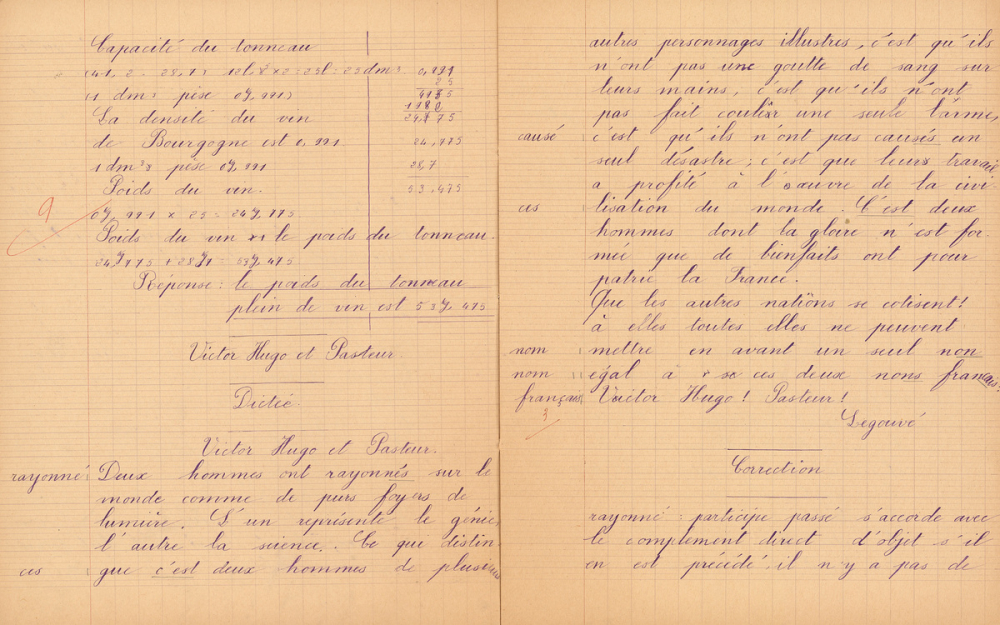 Capacité du tonneau
(41, 2 - 28, 1) = 25l = 25dm3
(1 dm3 pèse 0g, 991)
La densité du vin
de Bourgogne est 0, 991
1 dm3 pèse 0g, 991
Poids du vin.
0g, 991 x 25 = 24g, 775
Poids du vin le poids du tonneau.
24g775 + 28g7 = 53g, 475
Réponse : le poids du tonneau
plein de vin est 53g, 475
0,991
25
1980
24,775
28,7
53,475
9
Victor Hugo et Pasteur
Dictée
Victor Hugo et Pasteur.
rayonné Deux hommes ont rayonnés sur le
monde comme de purs foyers de
lumière. L'un représente le génie,
l'autre la science. Ce qui distin
ces gue c'est deux hommes de plusieurs
autres personnages illustres, c'est qu'ils
n'ont pas une goutte de sang sur
leurs mains, c'est qu'ils n'ont
pas fait couler une seule larme,
causé c'est qu'ils n'ont pas causés un
seul désastre ; c'est que leurs travail
a profité à l'oœuvre de la civi
ces lisation du monde. C'est deux
hommes dont la gloire n'est for-
mée que de bienfaits ont pour
patrie la France.
Que les autres natïons se cotisent !
à elles toutes elles ne peuvent
nom mettre en avant un seul non
nom égal à ces deux nons français :
français Victor Hugo ! Pasteur !
Legouvé
3
Correction
rayonné : participe passé s'accorde avec
le complément direct d'objet s'il
en est précédé : il n'y a pas de